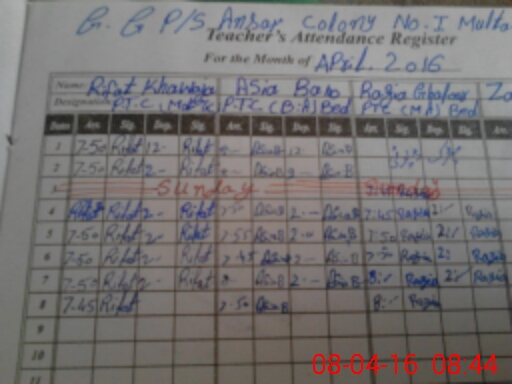 G. G P/S Ansar Colony No. I Multa
Teacher's Attendance Register
For the Month of APril. 2016
Name: Rifat Khanam Asia Bano Razia Ghafoor Za
Designation: P.T.C, Matric P.T.C (B.A) Bed PTC (MA) Bed
Dates Arr. Sig. Dep. Sig. Arr. Sig. Dep. Sig. Arr. Sig. Dep. Sig. Arr.
1 7-50 Rifat 12- Rifat 8- AsiaB 12- AsiaB
2 7-50 Rifat 2- Rifat AsiaB 2- AsiaB
3 Sunday Sunday
4 Rifat Rifat 2- Rifat AsiaB 2-- AsiaB 7-45 Razia 2:- Razia
5 7-50 Rifat 2- Rifat 7-55 AsiaB 2-- AsiaB 7-50 Razia 2:- Razia
6 7-50 Rifat 2- Rifat 7-45 AsiaB 2-- AsiaB Razia 2:- Razia
7 7-50 Rifat 2- Rifat 8- AsiaB 2-- AsiaB 8:- Razia 2:- Razia
8 7-45 Rifat 7-50 AsiaB 8:- Razia
9
10
11
08-04-16 08:44